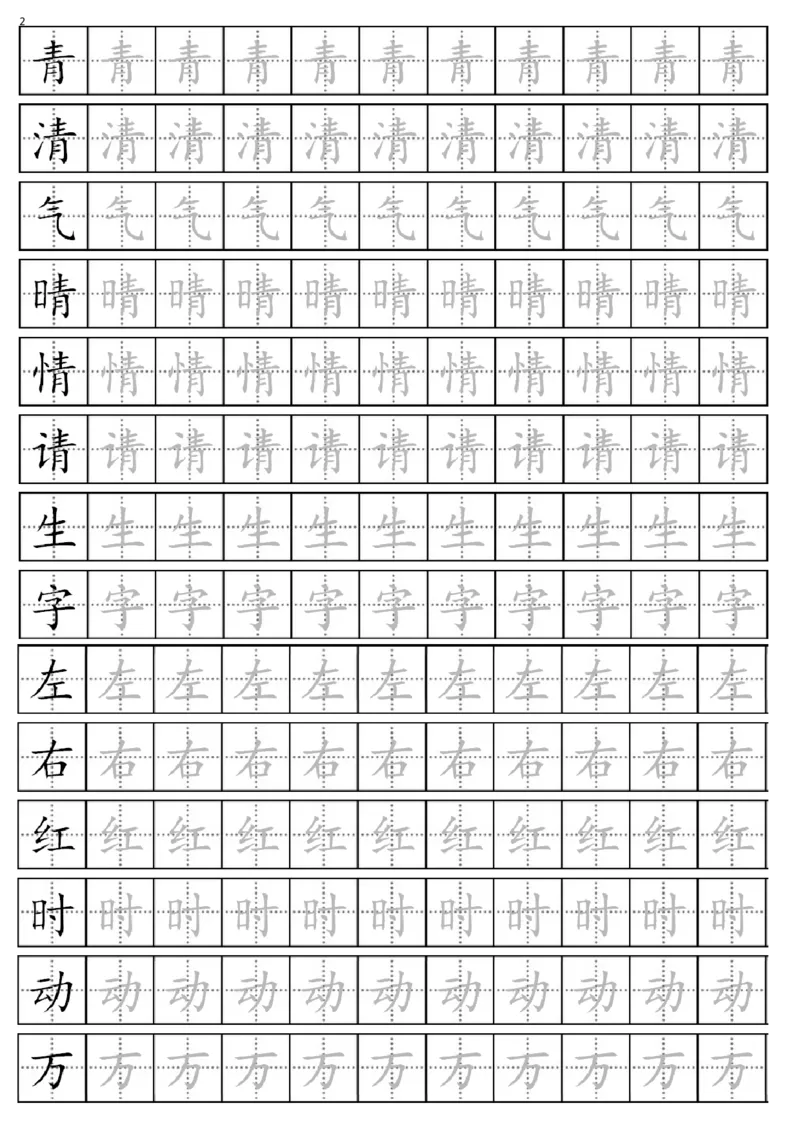 2
青青青青青青青青青青青
清清清清清清清清清清清
气气气气气气气气气气气
晴晴晴晴晴晴晴晴晴晴晴
情情情情情情情情情情情
请请请请请请请请请请请
生生生生生生生生生生生
字字字字字字字字字字字
左左左左左左左左左左左
右右右右右右右右右右右
红红红红红红红红红红红
时时时时时时时时时时时
动动动动动动动动动动动
万万万万万万万万万万万